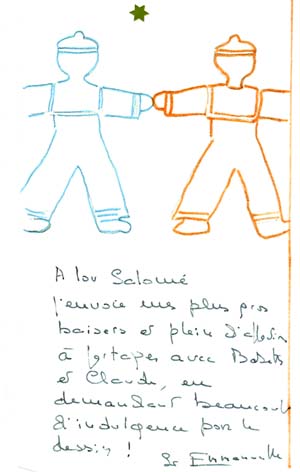 A lou Salomé
j'envoie mes plus gros
baisers et plein d'affection
à partager avec Babeth
et Claude, en
demandant beaucoup
d'indulgence pour le
dessin !
Sr Emmanuelle